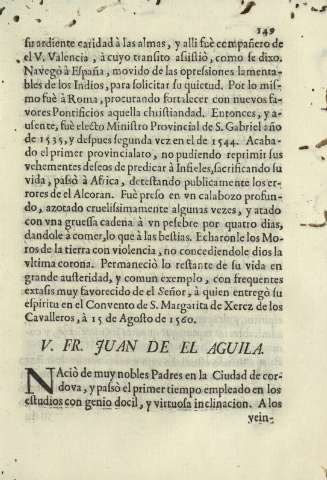 149
su ardiente caridad à las almas, y alli fuè compañero de
el V. Valencia, à cuyo transito assistiò, como se dixo.
Navegò à España, movido de las opressiones lamenta-
bles de los Indios, para solicitar su quietud. Por lo mis-
mo fuè à Roma, procurando fortalecer con nuevos fa-
vores Pontificios aquella christiandad. Entonces, y a-
usente, fuè electo Ministro Provincial de S. Gabriel año
de 1535, y despues segunda vez en el de 1544. Acaba-
do el primer provincialato, no pudiendo reprimir sus
vehementes deseos de predicar à Infieles, sacrificando su
vida, passò à Africa, detestando publicamente los er-
rores de el Alcoran. Fuè preso en vn calabozo profun-
do, azotado cruelissimamente algunas vezes, y atado
con vna gruessa cadena à vn pesebre por quatro dias,
dandole à comer, lo que à las bestias. Echaronle los Mo-
ros de la tierra con violencia, no concediendole dios la
vltima corona. Permaneciò lo restante de su vida en
grande austeridad, y comun exemplo, con frequentes
extasis muy favorecido de el Señor, à quien entregò su
espiritu en el Convento de S. Margarita de Xerez de los
Cavalleros, à 15 de Agosto de 1560.
V. FR. JUAN DE EL AGUILA.
NAciò de muy nobles Padres en la Ciudad de cor-
dova, y passò el primer tiempo empleado en los
estudios con genio docil, y virtuosa inclinacion. A los
vein-